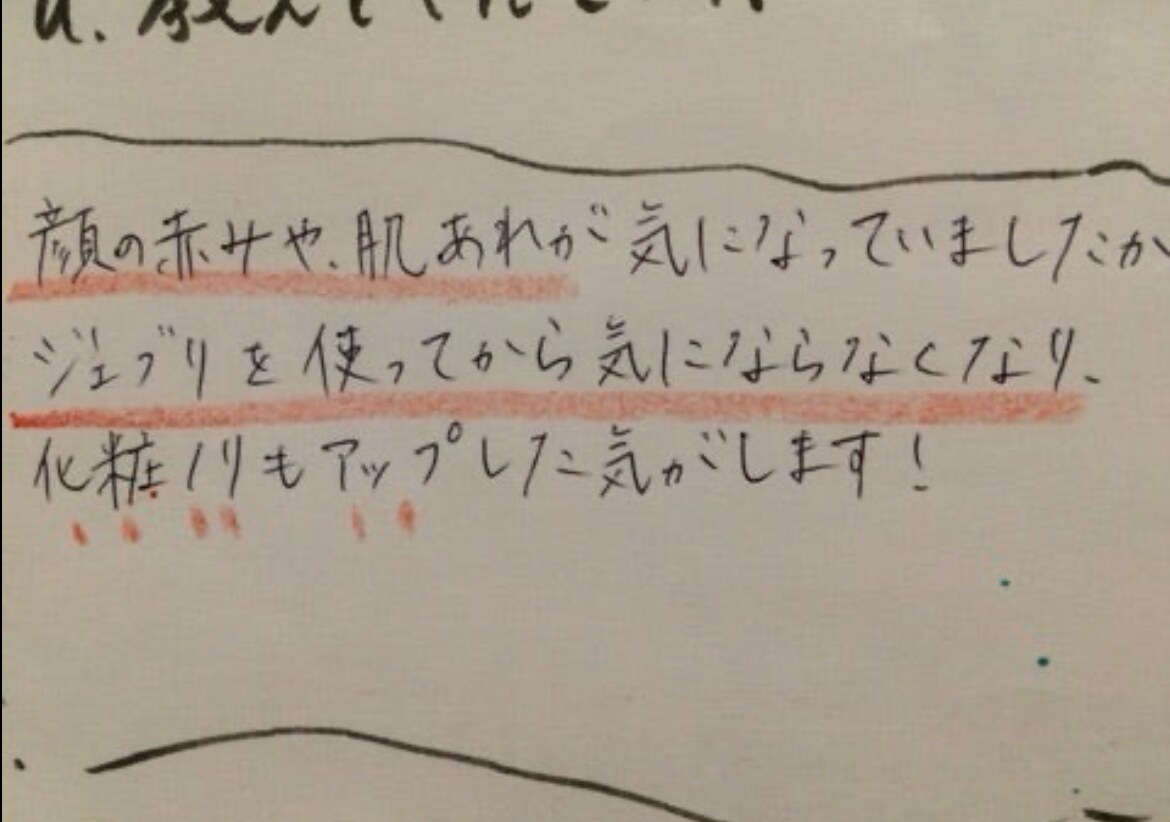 顔の赤みや、肌あれが気になっていましたが
ジェブリを使ってから気にならなくなり、
化粧ノリもアップした気がします！